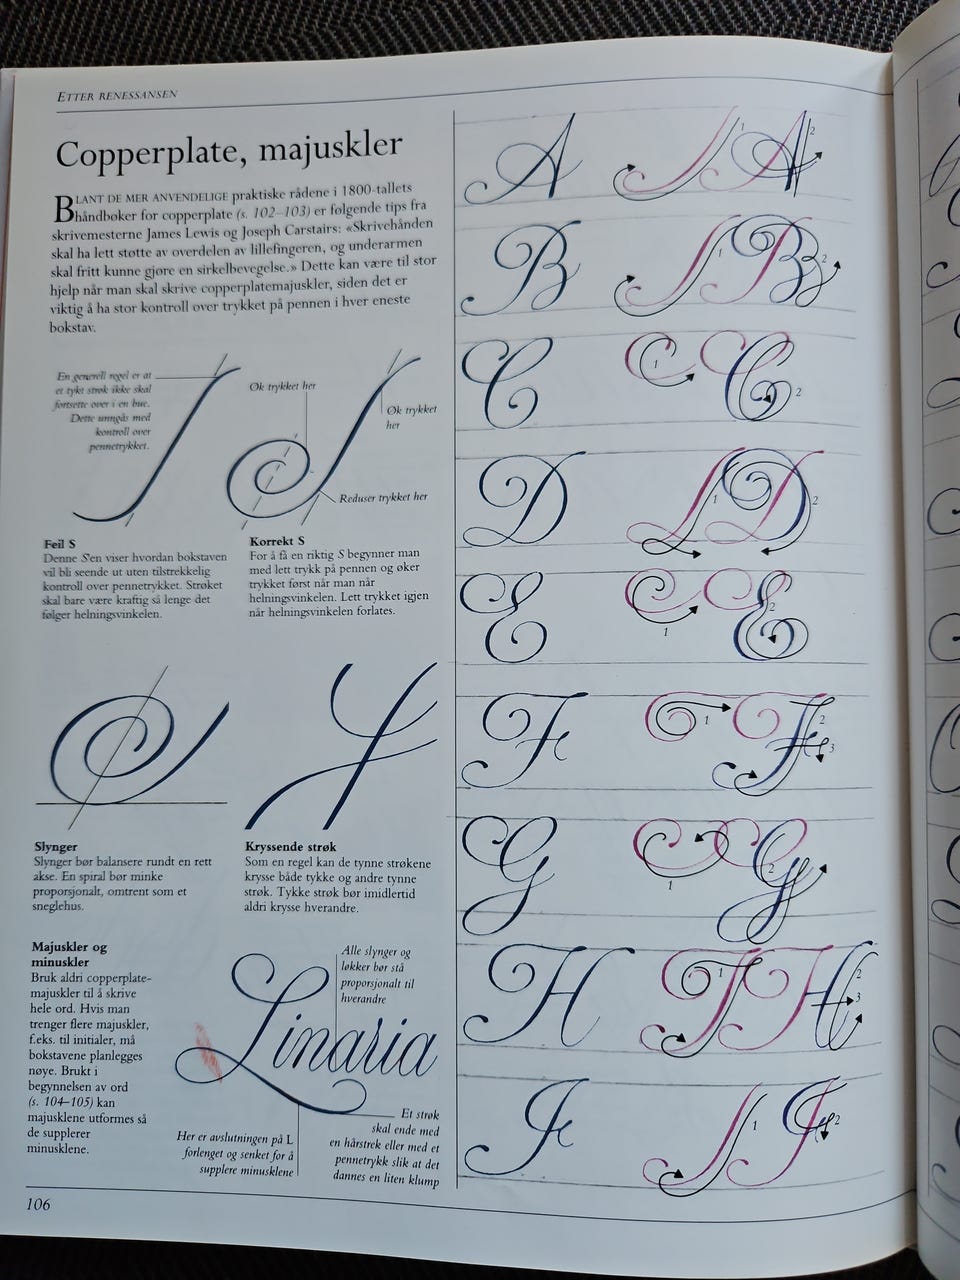 ETTER RENESSANSEN
Copperplate, majuskler
BLANT DE MER ANVENDELIGE praktiske rådene i 1800-tallets
håndbøker for copperplate (s. 102–103) er følgende tips fra
skrivemesterne James Lewis og Joseph Carstairs: «Skrivehånden
skal ha lett støtte av overdelen av lillefingeren, og underarmen
skal fritt kunne gjøre en sirkelbevegelse.» Dette kan være til stor
hjelp når man skal skrive copperplatemajuskler, siden det er
viktig å ha stor kontroll over trykket på pennen i hver eneste
bokstav.
En generell regel er at
et tykt strøk ikke skal
fortsette over i en bue.
Dette unngås med
kontroll over
pennetrykket.
Øk trykket her
Øk trykket
her
Reduser trykket her
Feil S
Denne S'en viser hvordan bokstaven
vil bli seende ut uten tilstrekkelig
kontroll over pennetrykket. Strøket
skal bare være kraftig så lenge det
følger helningsvinkelen.
Korrekt S
For å få en riktig S begynner man
med lett trykk på pennen og øker
trykket først når man når
helningsvinkelen. Lett trykket igjen
når helningsvinkelen forlates.
Slynger
Slynger bør balansere rundt en rett
akse. En spiral bør minke
proporsjonalt, omtrent som et
sneglehus.
Kryssende strøk
Som en regel kan de tynne strøkene
krysse både tykke og andre tynne
strøk. Tykke strøk bør imidlertid
aldri krysse hverandre.
Majuskler og
minuskler
Bruk aldri copperplate-
majuskler til å skrive
hele ord. Hvis man
trenger flere majuskler,
f.eks. til initialer, må
bokstavene planlegges
nøye. Brukt i
begynnelsen av ord
(s. 104–105) kan
majusklene utformes så
de supplerer
minusklene.
Alle slynger og
løkker bør stå
proporsjonalt til
hverandre
Linaria
Her er avslutningen på L
forlenget og senket for å
supplere minusklene
Et strøk
skal ende med
en hårstrek eller med et
pennetrykk slik at det
dannes en liten klump
A A 1 2
B B 1 2
C C 1 2
D D 1 2
E E 1 2
F F 1 2 3
G G 1 2
H H 1 2 3
I I 1 2
106